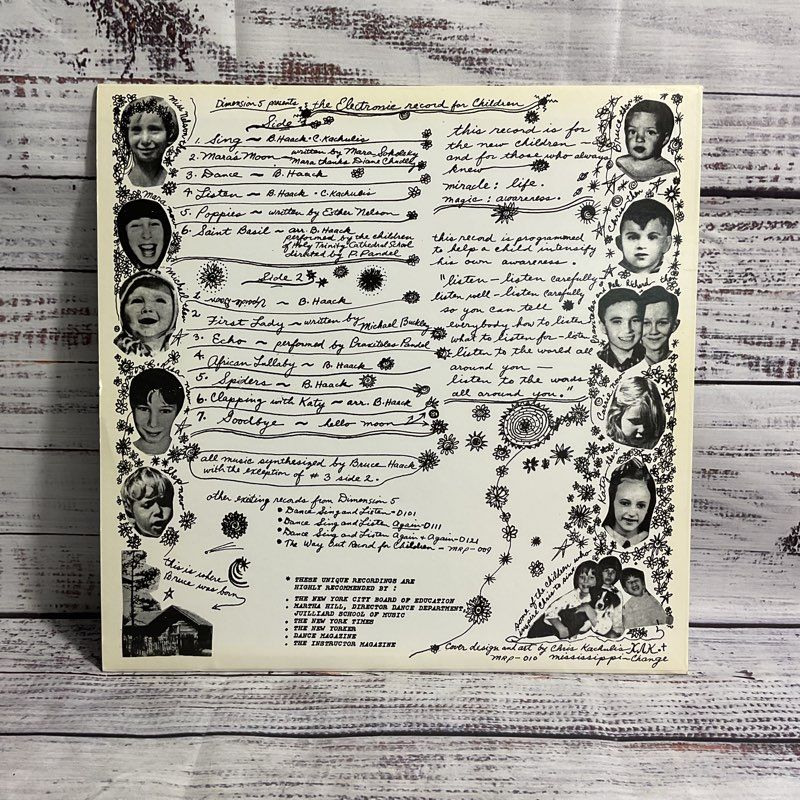 Dimension 5 presents: the Electronic record for Children
Side 1
1. Sing ~ B. Haack · C. Kachulis
2. Mara's Moon ~ written by Mara Sokolsky
Mara thanks Diane Chudley
3. Dance ~ B. Haack
4. Listen ~ B. Haack · C. Kachulis
5. Poppies ~ written by Esther Nelson
6. Saint Basil ~ arr. B. Haack
performed by the children
of Holy Trinity Cathedral School
directed by P. Pandel
Side 2
1. ~ B. Haack
2. First Lady ~ written by Michael Buckley
3. Echo ~ performed by Praxiteles Pandel
4. African Lullaby ~ B. Haack
5. Spiders ~ B. Haack
6. Clapping with Katy ~ arr. B. Haack
7. Goodbye ~ hello moon
all music synthesized by Bruce Haack
with the exception of # 3 side 2.
other exciting records from Dimension 5
• Dance Sing and Listen - D101
• Dance Sing and Listen Again - D111
• Dance Sing and Listen Again & Again - D121
• The Way Out Record for Children - MRP-009
* THESE UNIQUE RECORDINGS ARE
HIGHLY RECOMMENDED BY :
• THE NEW YORK CITY BOARD OF EDUCATION
MARTHA HILL, DIRECTOR DANCE DEPARTMENT,
JUILLIARD SCHOOL OF MUSIC
• THE NEW YORK TIMES
• THE NEW YORKER
• DANCE MAGAZINE
• THE INSTRUCTOR MAGAZINE
this record is for
the new children —
and for those who always
knew
miracle : life.
magic : awareness.
this record is programmed
to help a child intensify
his own awareness.
"listen - listen carefully
listen well - listen carefully
so you can tell
everybody how to listen
what to listen for - listen
listen to the world all
around you —
listen to the words
all around you."
this is where
Bruce was born
Mara
Esther
Bruce
Chris
Katy
some of the children who
inspired Chris to sing
Cover design and art by Chris Kachulis
MRP-010 Mississippi-Change